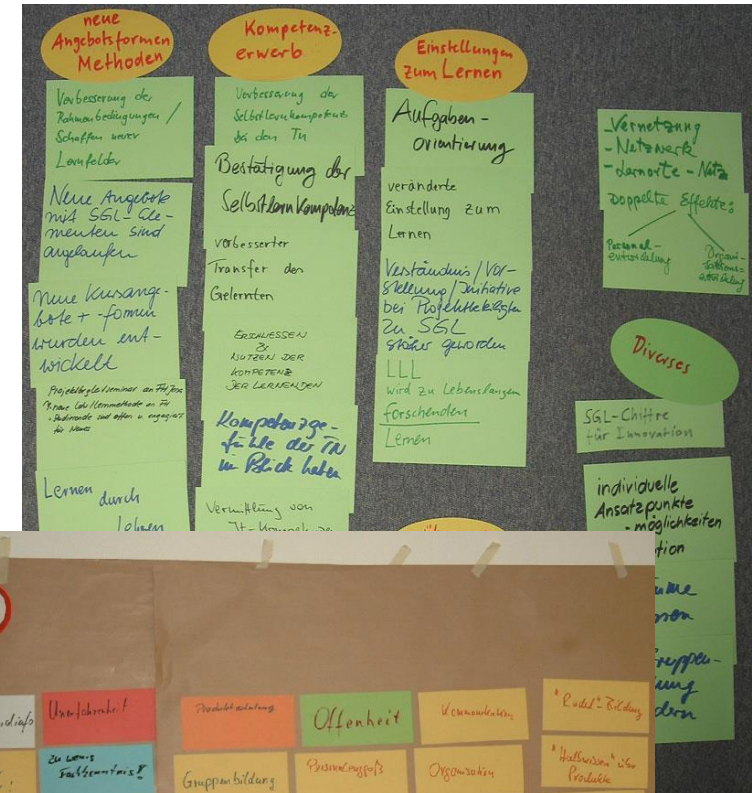 neue
Angebotsformen
Methoden
Verbesserung der
Rahmenbedingungen /
Schaffen neuer
Lernfelder
Neue Angebote
mit SGL-Ele-
menten sind
angelaufen
Neue Kursange-
bote + -formen
wurden ent-
wickelt
Projektbegleitseminar an FH
neue Lehr/Lernmethode an FH
Studierende sind offen u. engagiert
für Neues
Lernen durch
Lehren
Kompetenz-
erwerb
Verbesserung der
Selbstlernkompetenz
bei den TN
Bestätigung der
Selbstlernkompetenz
verbesserter
Transfer des
Gelernten
ERSCHLIESSEN
&
NUTZEN DER
KOMPETENZ
DER LERNENDEN
Kompetenzge-
fühle der TN
im Blick haben
Vermittlung von
Einstellungen
zum Lernen
Aufgaben-
orientierung
veränderte
Einstellung zum
Lernen
Verständnis/Vor-
stellung/Initiative
bei Projektbeteiligten
zu SGL
stärker geworden
LLL
wird zu Lebenslangem
forschenden
Lernen
-Vernetzung
-Netzwerk
-Lernorte-Netz
Doppelte Effekte:
Personal-
entwicklung
Organi-
sations-
entwicklung
Diverses
SGL-Chiffre
für Innovation
individuelle
Ansatzpunkte
-möglichkeiten
Unerfahrenheit
zu wenig
Fachkenntnis!
Gruppenbildung
Offenheit
Kommunikation
Organisation
"Rudel"-Bildung
"Halbwissen" über
Produkte